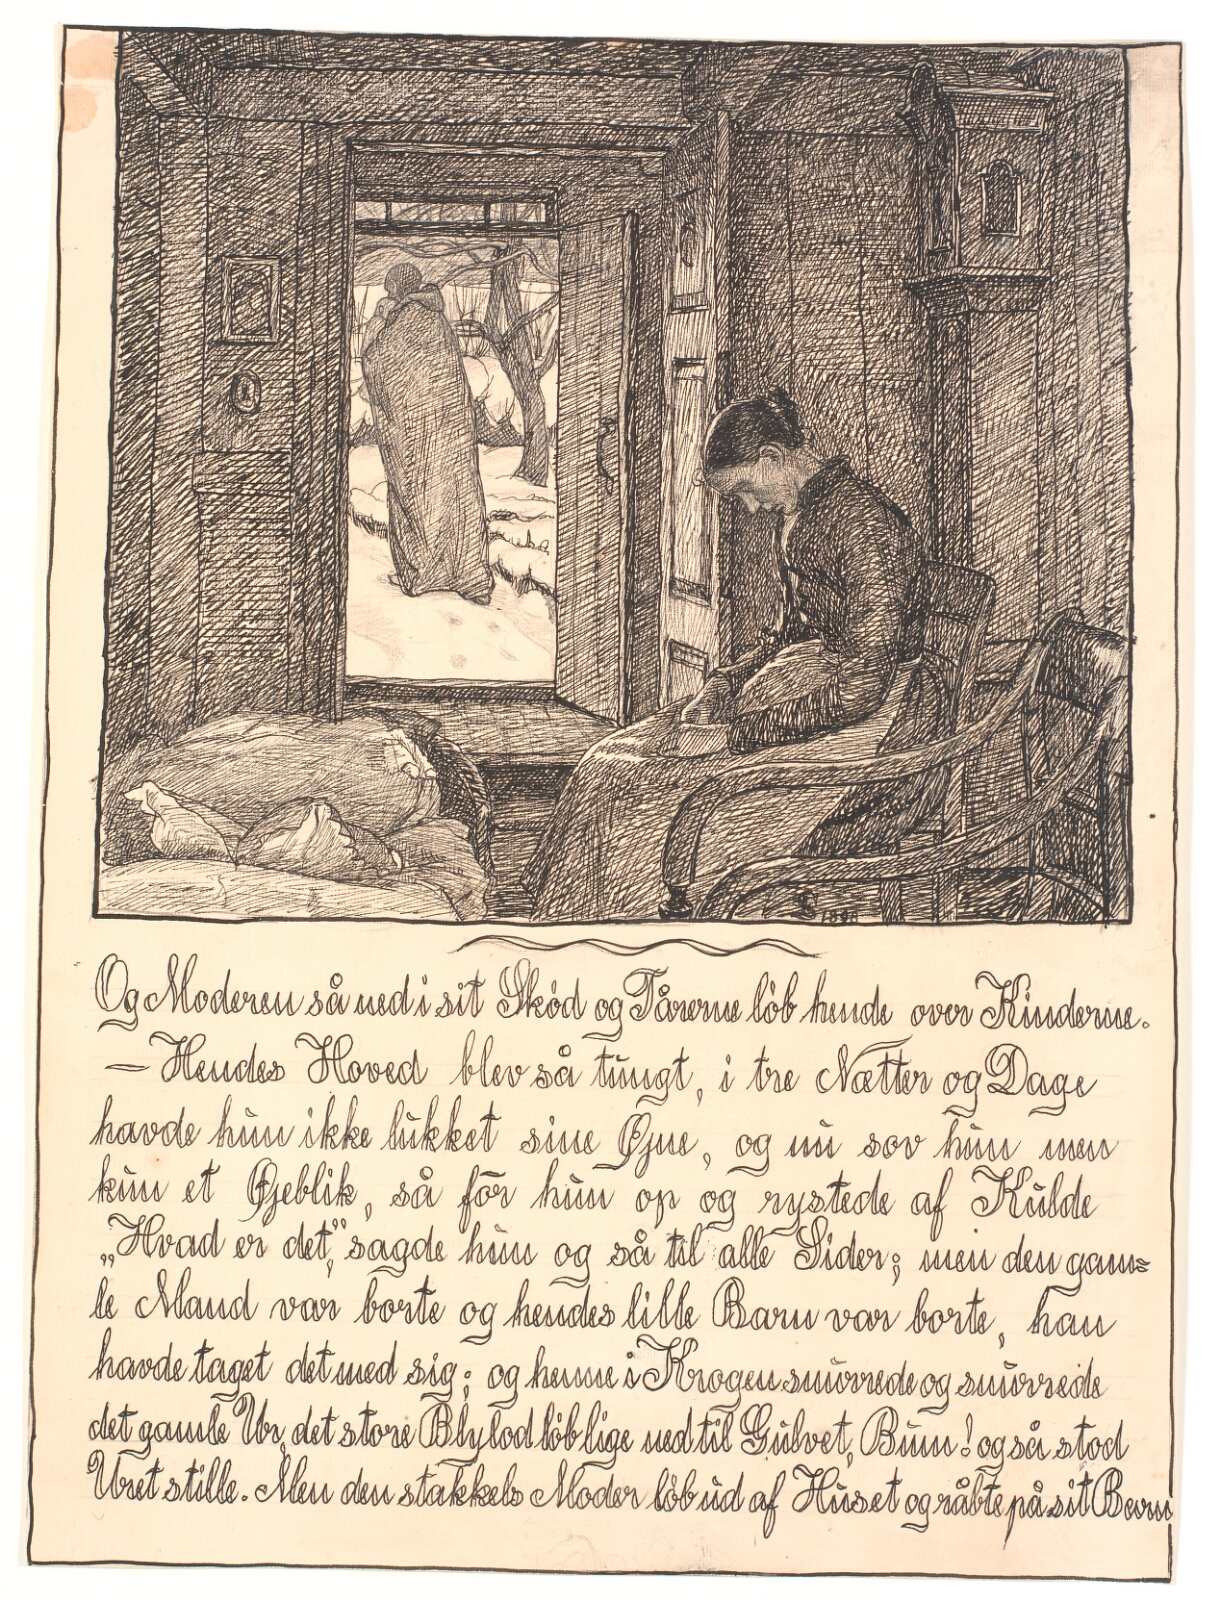 1890
Og Moderen så ned i sit Skød og Tårerne løb hende over Kinderne.
— Hendes Hoved blev så tungt, i tre Nætter og Dage
havde hun ikke lukket sine Øjne, og nu sov hun men
kun et Øjeblik, så fór hun op og rystede af Kulde
„Hvad er det”, sagde hun og så til alle Sider; men den gam=
le Mand var borte og hendes lille Barn var borte, han
havde taget det med sig; og henne i Krogen snurrede og snurrede
det gamle Ur, det store Blylod løb lige ned til Gulvet, Bum! og så stod
Uret stille. Men den stakkels Moder løb ud af Huset og råbte på sit Barn